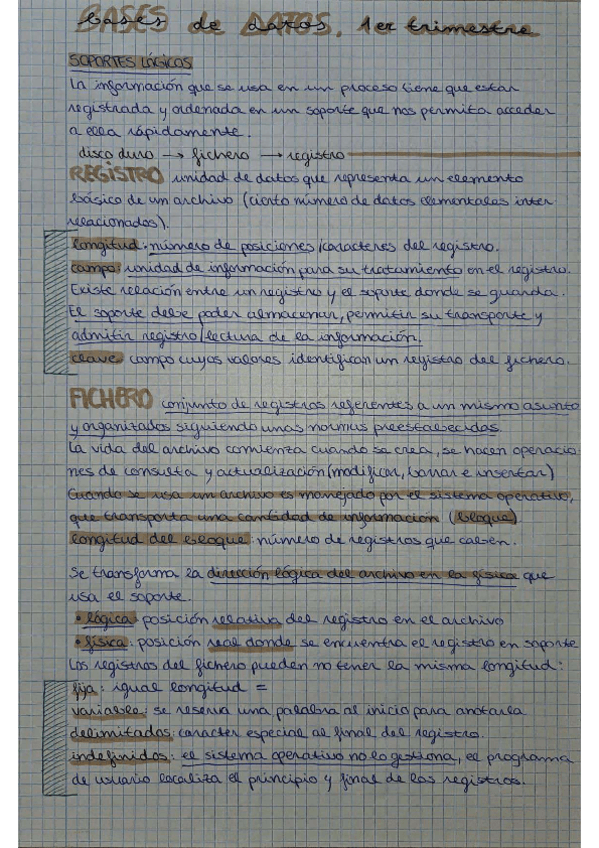 bases de datos. 1er trimestre
SOPORTES LÓGICOS
La información que se usa en un proceso tiene que estar
registrada y ordenada en un soporte que nos permita acceder
a ella rápidamente.
disco duro → fichero → registro
REGISTRO unidad de datos que representa un elemento
básico de un archivo (cierto número de datos elementales inter
relacionados).
longitud: número de posiciones/caracteres del registro.
campo: unidad de información para su tratamiento en el registro.
Existe relación entre un registro y el soporte donde se guarda.
El soporte debe poder almacenar, permitir su transporte y
admitir registro/lectura de la información.
clave campo cuyos valores identifican un registro del fichero.
FICHERO conjunto de registros referentes a un mismo asunto
y organizados siguiendo unas normas preestablecidas
La vida del archivo comienza cuando se crea, se hacen operacio
nes de consulta y actualización (modificar, borrar e insertar)
Cuando se usa un archivo es manejado por el sistema operativo,
que transporta una cantidad de información (bloque)
longitud del bloque: número de registros que caben.
Se transforma la dirección lógica del archivo en la física que
usa el soporte.
• lógica posición relativa del registro en el archivo
• física: posición real donde se encuentra el registro en soporte
Los registros del fichero pueden no tener la misma longitud:
fija: igual longitud =
variable: se reserva una palabra al inicio para anotarla
delimitados: caracter especial al final del registro.
indefinidos: el sistema operativo no lo gestiona, el programa
de usuario localiza el principio y final de los registros.